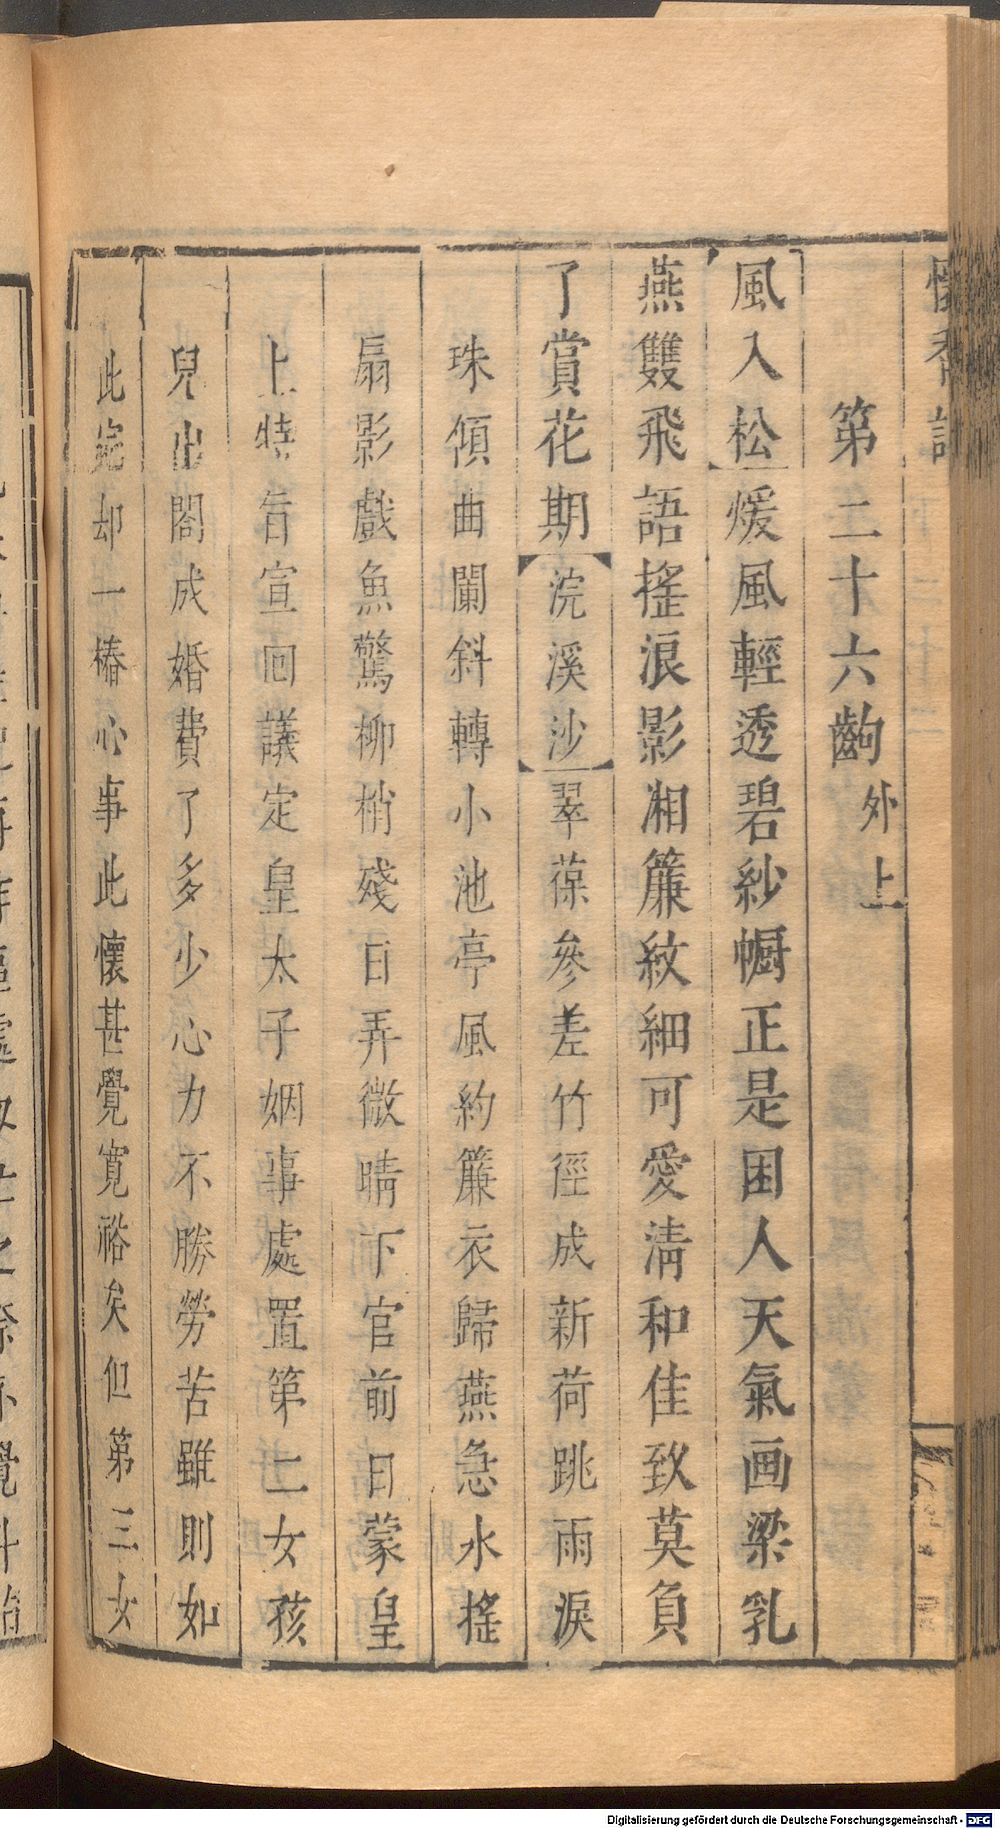 懷香記
第二十六齣外上
風入松煖風輕透碧紗㡡正是困人天氣画梁乳
燕雙飛語搖浪影湘簾紋細可愛清和佳致莫負
了賞花期浣溪沙翠葆參差竹徑成新荷跳雨淚
珠傾曲闌斜轉小池亭風約簾衣歸燕急水搖
扇影戲魚驚柳梢殘日弄微晴下官前日蒙皇
上特旨宣囘議定皇太子姻事處置第二女孩
兒出閣成婚費了多少心力不勝勞苦雖則如
此完却一樁心事此懷甚覺寬裕矣但第三女
Digitalisierung gefördert durch die Deutsche Forschungsgemeinschaft - DFG